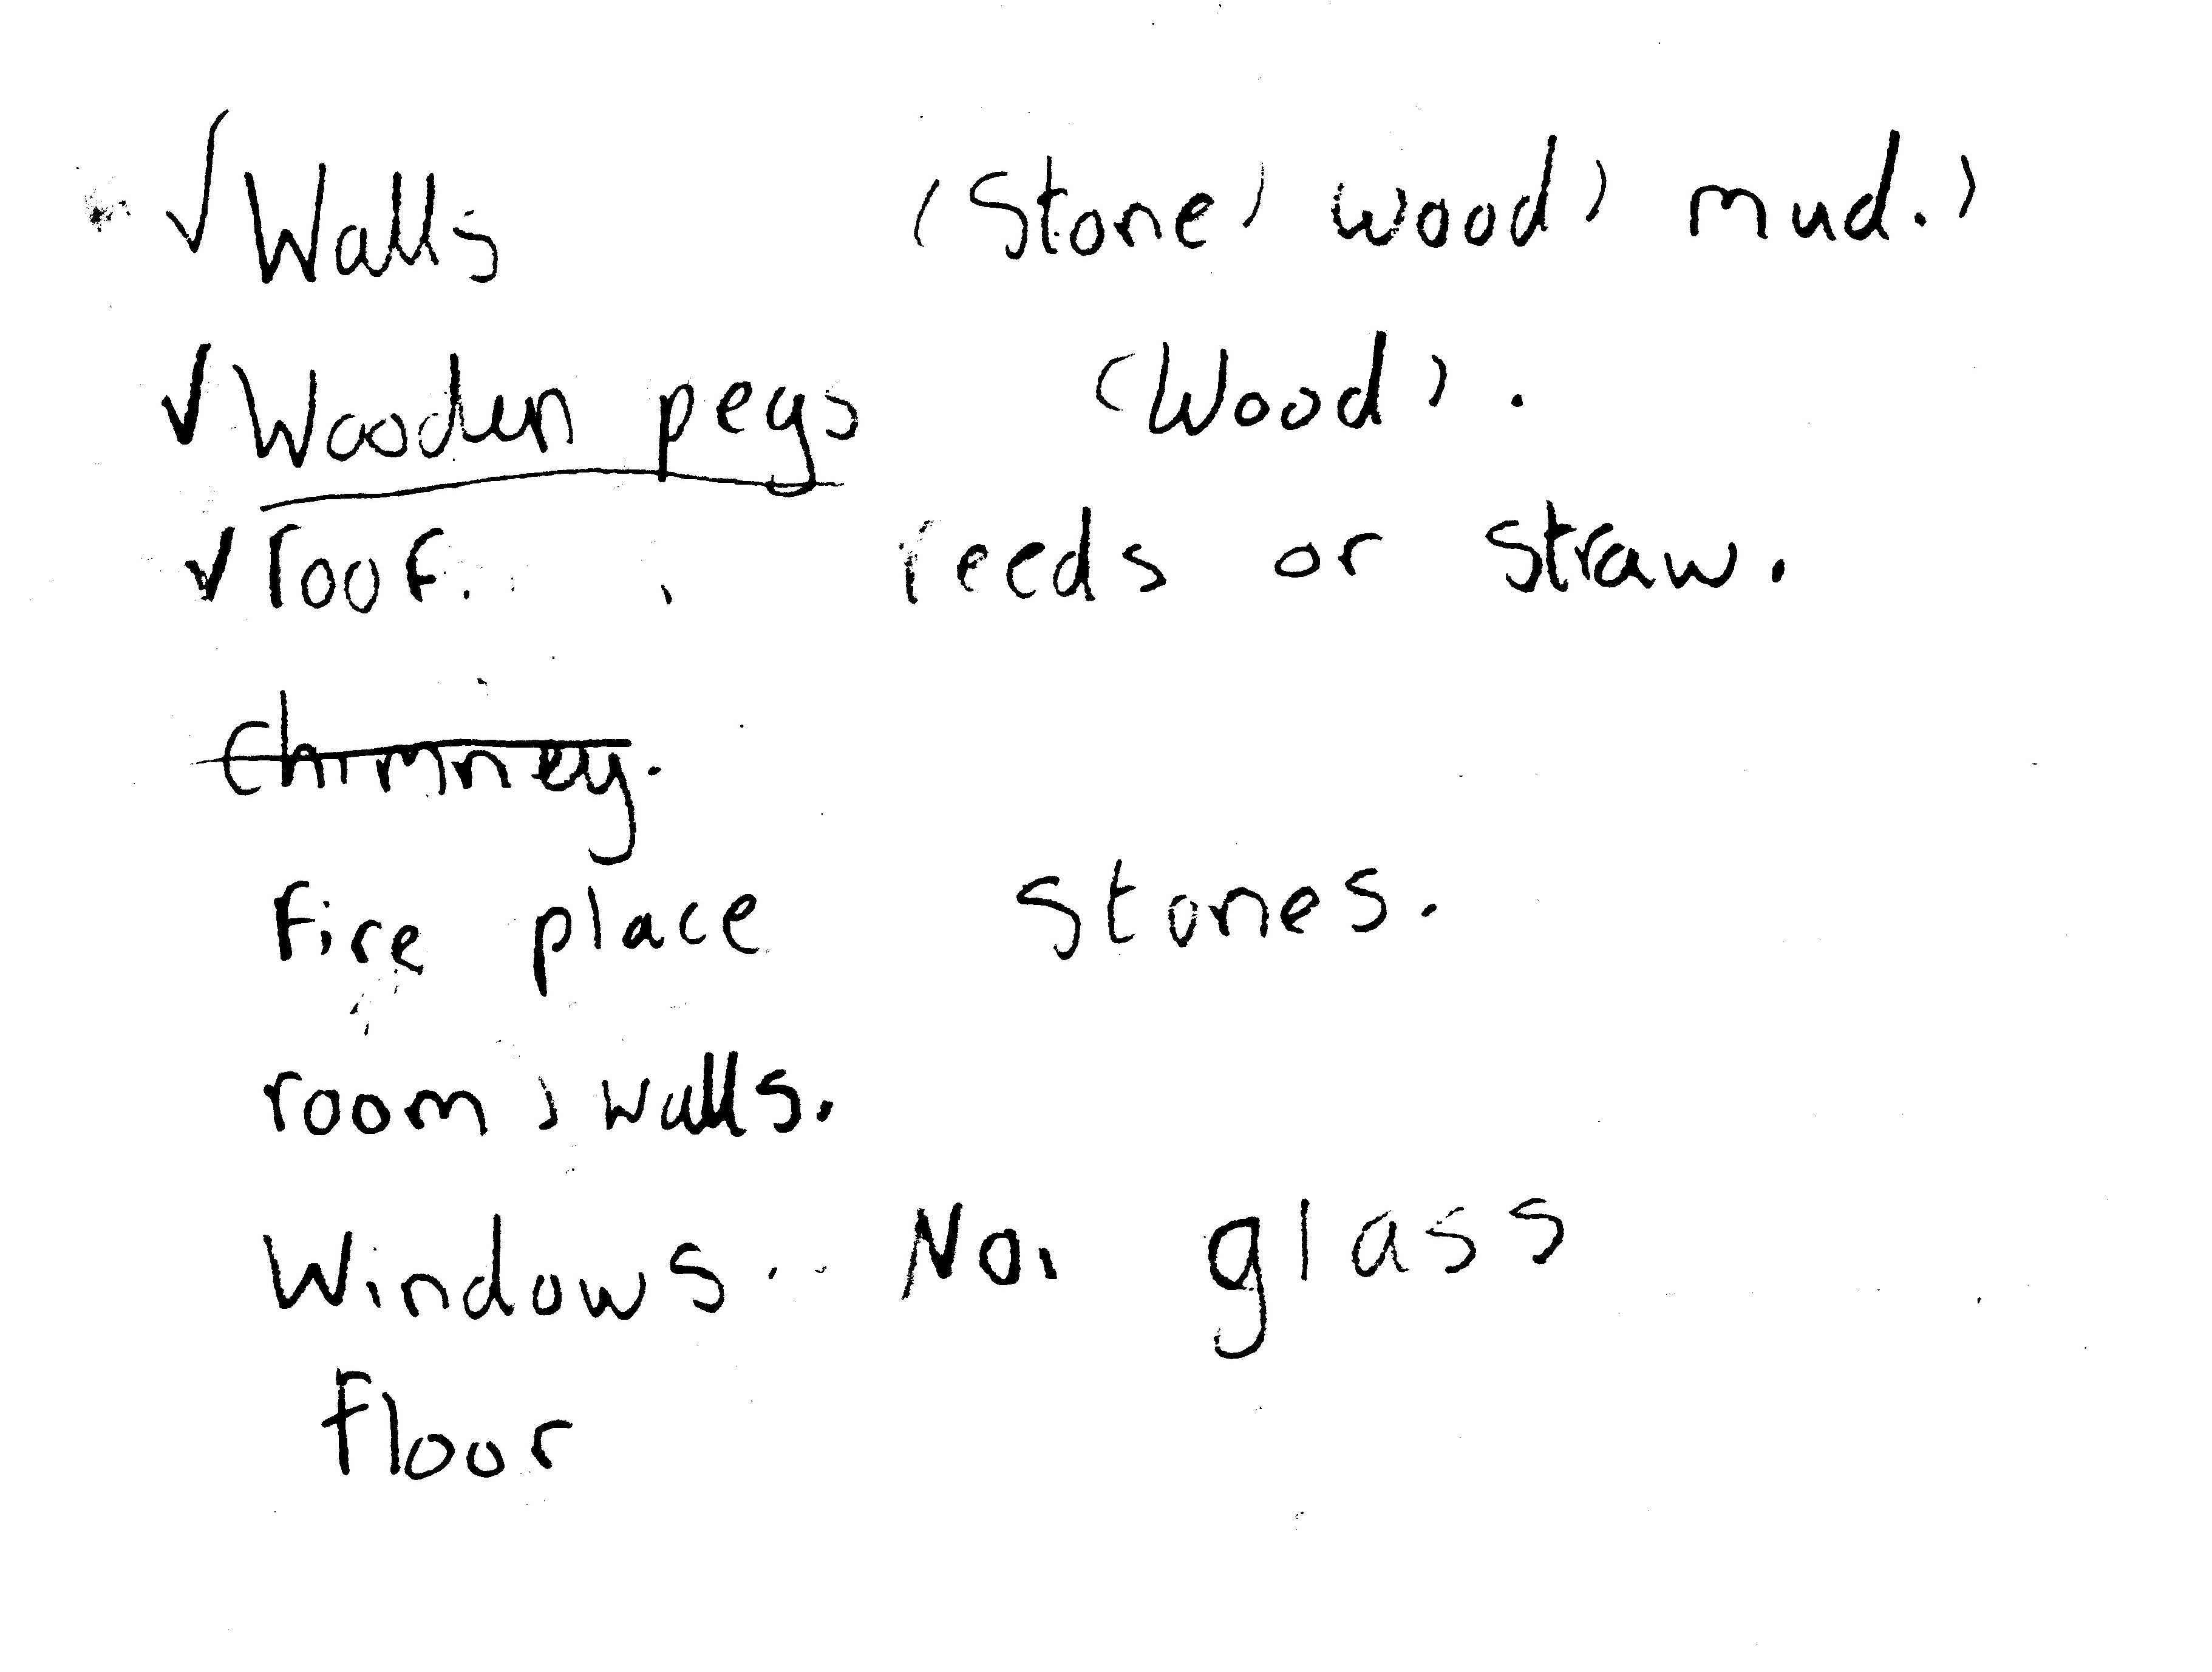 ✓ Walls (Stone, wood, mud.)
✓ Wooden pegs (Wood).
✓ roof. reeds or straw.
Chimney.
Fire place stones.
room, walls.
Windows.. No. glass
floor